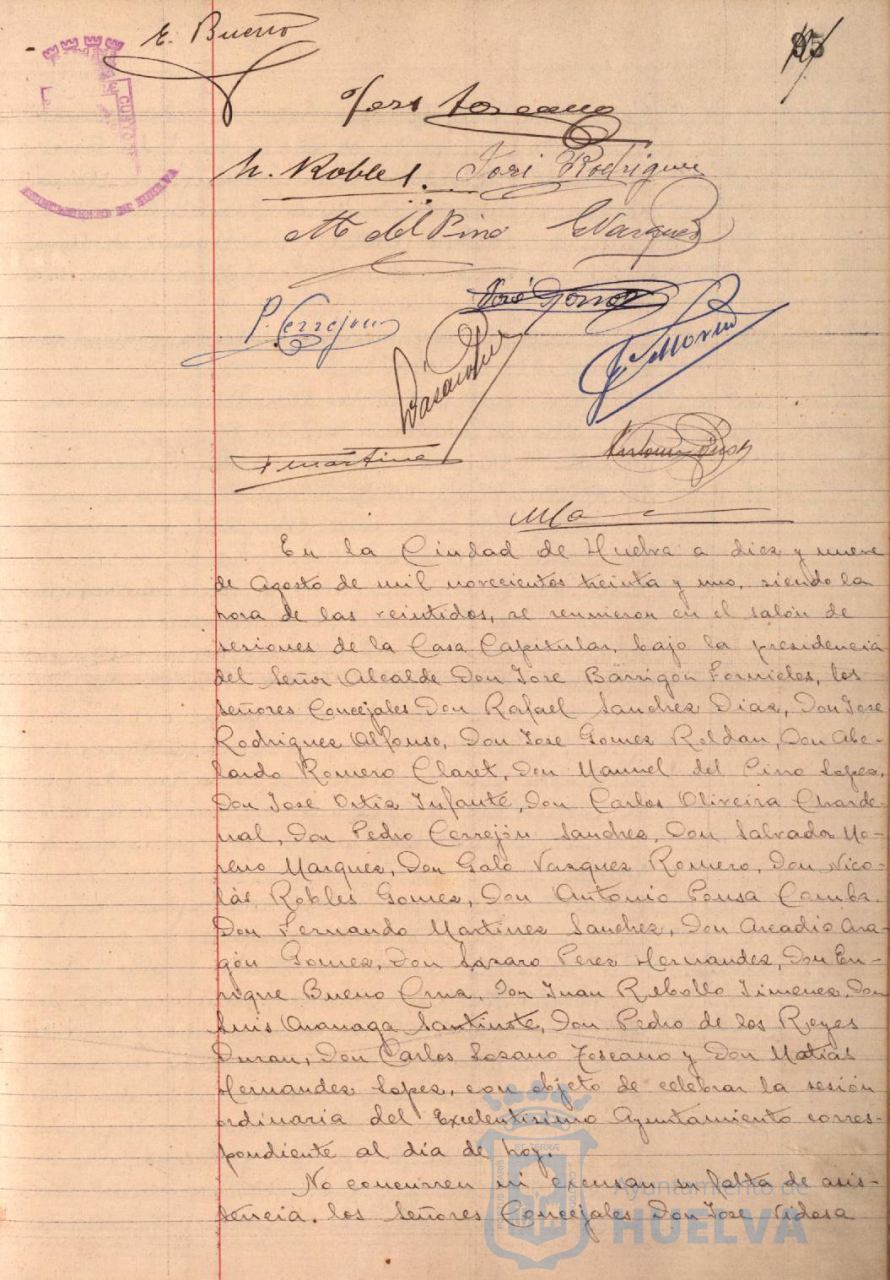 E. Bueno
95
CUSTO
AYUNTAMIENTO DE HUELVA
Toscano
N. Robles. José Rodriguez
M. del Pino GVazquez
P. Cerrejon José Gomez
S. Moreno
F Martinez
En la Ciudad de Huelva a diez y nueve
de Agosto de mil novecientos treinta y uno, siendo la
hora de las veintidos, se reunieron en el salón de
sesiones de la Casa Capitular, bajo la presidencia
del Señor Alcalde Don Jose Barrigón Fornieles, los
Señores Concejales Don Rafael Sanchez Diaz, Don Jose
Rodriguez Alfonso, Don Jose Gomez Roldan, Don Abe-
lardo Romero Claret, Don Manuel del Pino Lopez,
Don José Ortiz Infante, Don Carlos Oliveira Charde-
nal, Don Pedro Cerrejón Sanchez, Don Salvador Mo-
reno Marquez, Don Galo Vazquez Romero, Don Nico-
lás Robles Gomez, Don Antonio Pousa Camba,
Don Fernando Martinez Sanchez, Don Arcadio Ara-
gón Gomez, Don Lazaro Perez Hernandez, Don En-
rique Bueno Cruz, Don Juan Rebollo Jimenez, Don
Luis Aranaga Santinote, Don Pedro de los Reyes
Duran, Don Carlos Lozano Toscano y Don Matias
Hernandez Lopez, con objeto de celebrar la sesión
ordinaria del Excelentisimo Ayuntamiento corres-
pondiente al día de hoy.
No concurren ni excusan su falta de asis-
tencia, los Señores Concejales Don Jose Vidosa
Ayuntamiento de
HUELVA